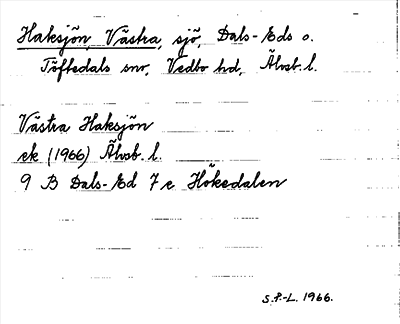 Haksjön, Västra, sjö, Dals-Eds o.
Töftedals snr, Vedbo hd, Älvsb. l.
Västra Haksjön
ek (1966) Älvsb. l.
9 B Dals-Ed 7 c Hökedalen
S.P.-L. 1966.